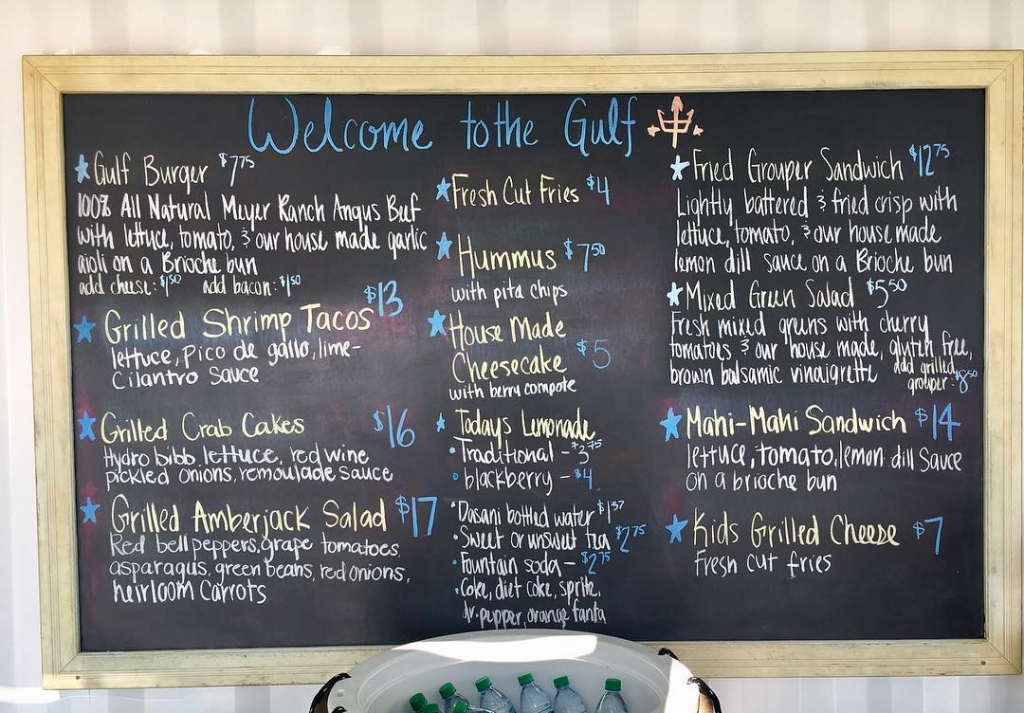 Welcome to the Gulf
Gulf Burger $7.75
100% All Natural Meyer Ranch Angus Beef
with lettuce, tomato, & our house made garlic
aioli on a Brioche bun
add cheese: $1.50 add bacon: $1.50
Grilled Shrimp Tacos $13
lettuce, pico de gallo, lime-
cilantro sauce
Grilled Crab Cakes $16
Hydro bibb lettuce, red wine
pickled onions, remoulade sauce
Grilled Amberjack Salad $17
Red bell peppers, grape tomatoes,
asparagus, green beans, red onions,
heirloom carrots
Fresh Cut Fries $4
Hummus $7.50
with pita chips
House Made
Cheesecake $5
with berry compote
Todays Lemonade
• Traditional - $3.75
• blackberry - $4
• Dasani bottled water $1.57
• Sweet or unsweet tea $2.75
• Fountain soda - $2.75
• Coke, diet coke, sprite,
dr. pepper, orange fanta
Fried Grouper Sandwich $12.75
Lightly battered & fried crisp with
lettuce, tomato, & our house made
lemon dill sauce on a Brioche bun
Mixed Green Salad $5.50
Fresh mixed greens with cherry
tomatoes & our house made, gluten free,
brown balsamic vinaigrette add grilled
grouper: $8.50
Mahi-Mahi Sandwich $14
lettuce, tomato, lemon dill sauce
on a brioche bun
Kids Grilled Cheese $7
Fresh cut fries